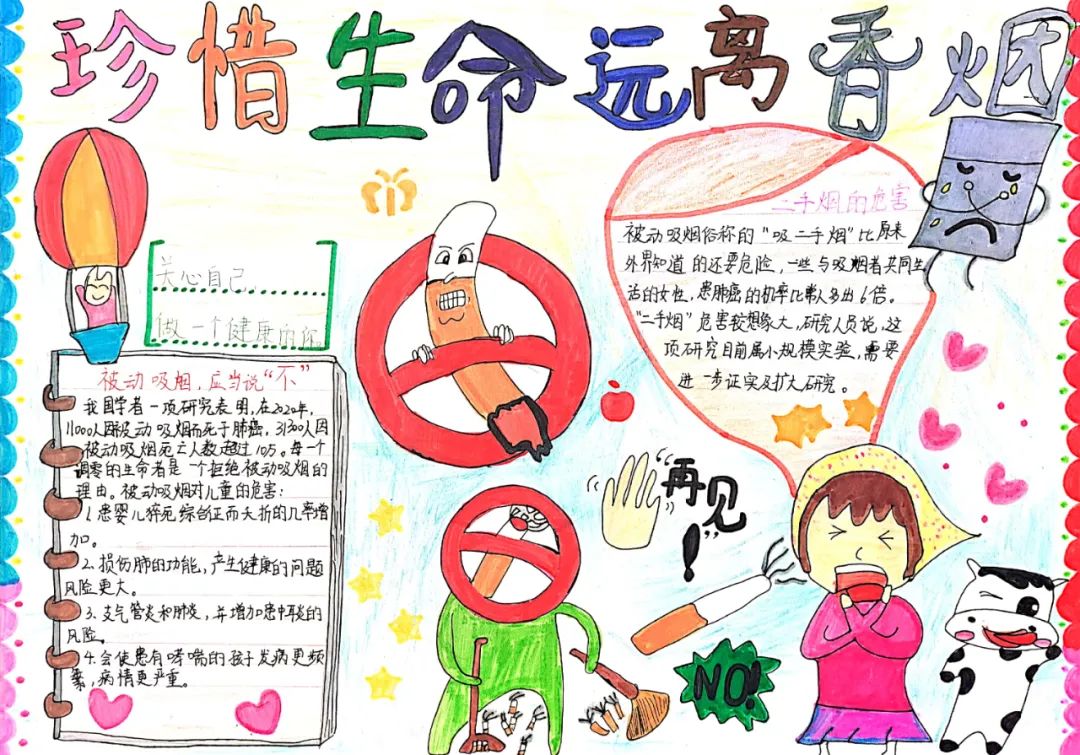 珍惜生命远离香烟
关心自己
做一个健康的你
被动吸烟,应当说“不”
我国学者一项研究表明,在2020年,
11000人因被动吸烟而死于肺癌,31300人因
被动吸烟死亡人数超过10万。每一个
凋零的生命者是一个拒绝被动吸烟的
理由。被动吸烟对儿童的危害:
1.患婴儿猝死综合征而夭折的几率增
加。
2.损伤肺的功能,产生健康的问题
风险更大。
3.支气管炎和肺炎,并增加患中耳炎的
风险。
4.会使患有哮喘的孩子发病更频
繁,病情更严重。
二手烟的危害
被动吸烟俗称的“吸二手烟”比原来
外界知道的还要危险,一些与吸烟者共同生
活的女性,患肺癌的机率比常人多出6倍。
“二手烟”危害较想象大,研究人员说,这
项研究目前属小规模实验,需要
进一步证实及扩大研究。
“再见”!
NO!